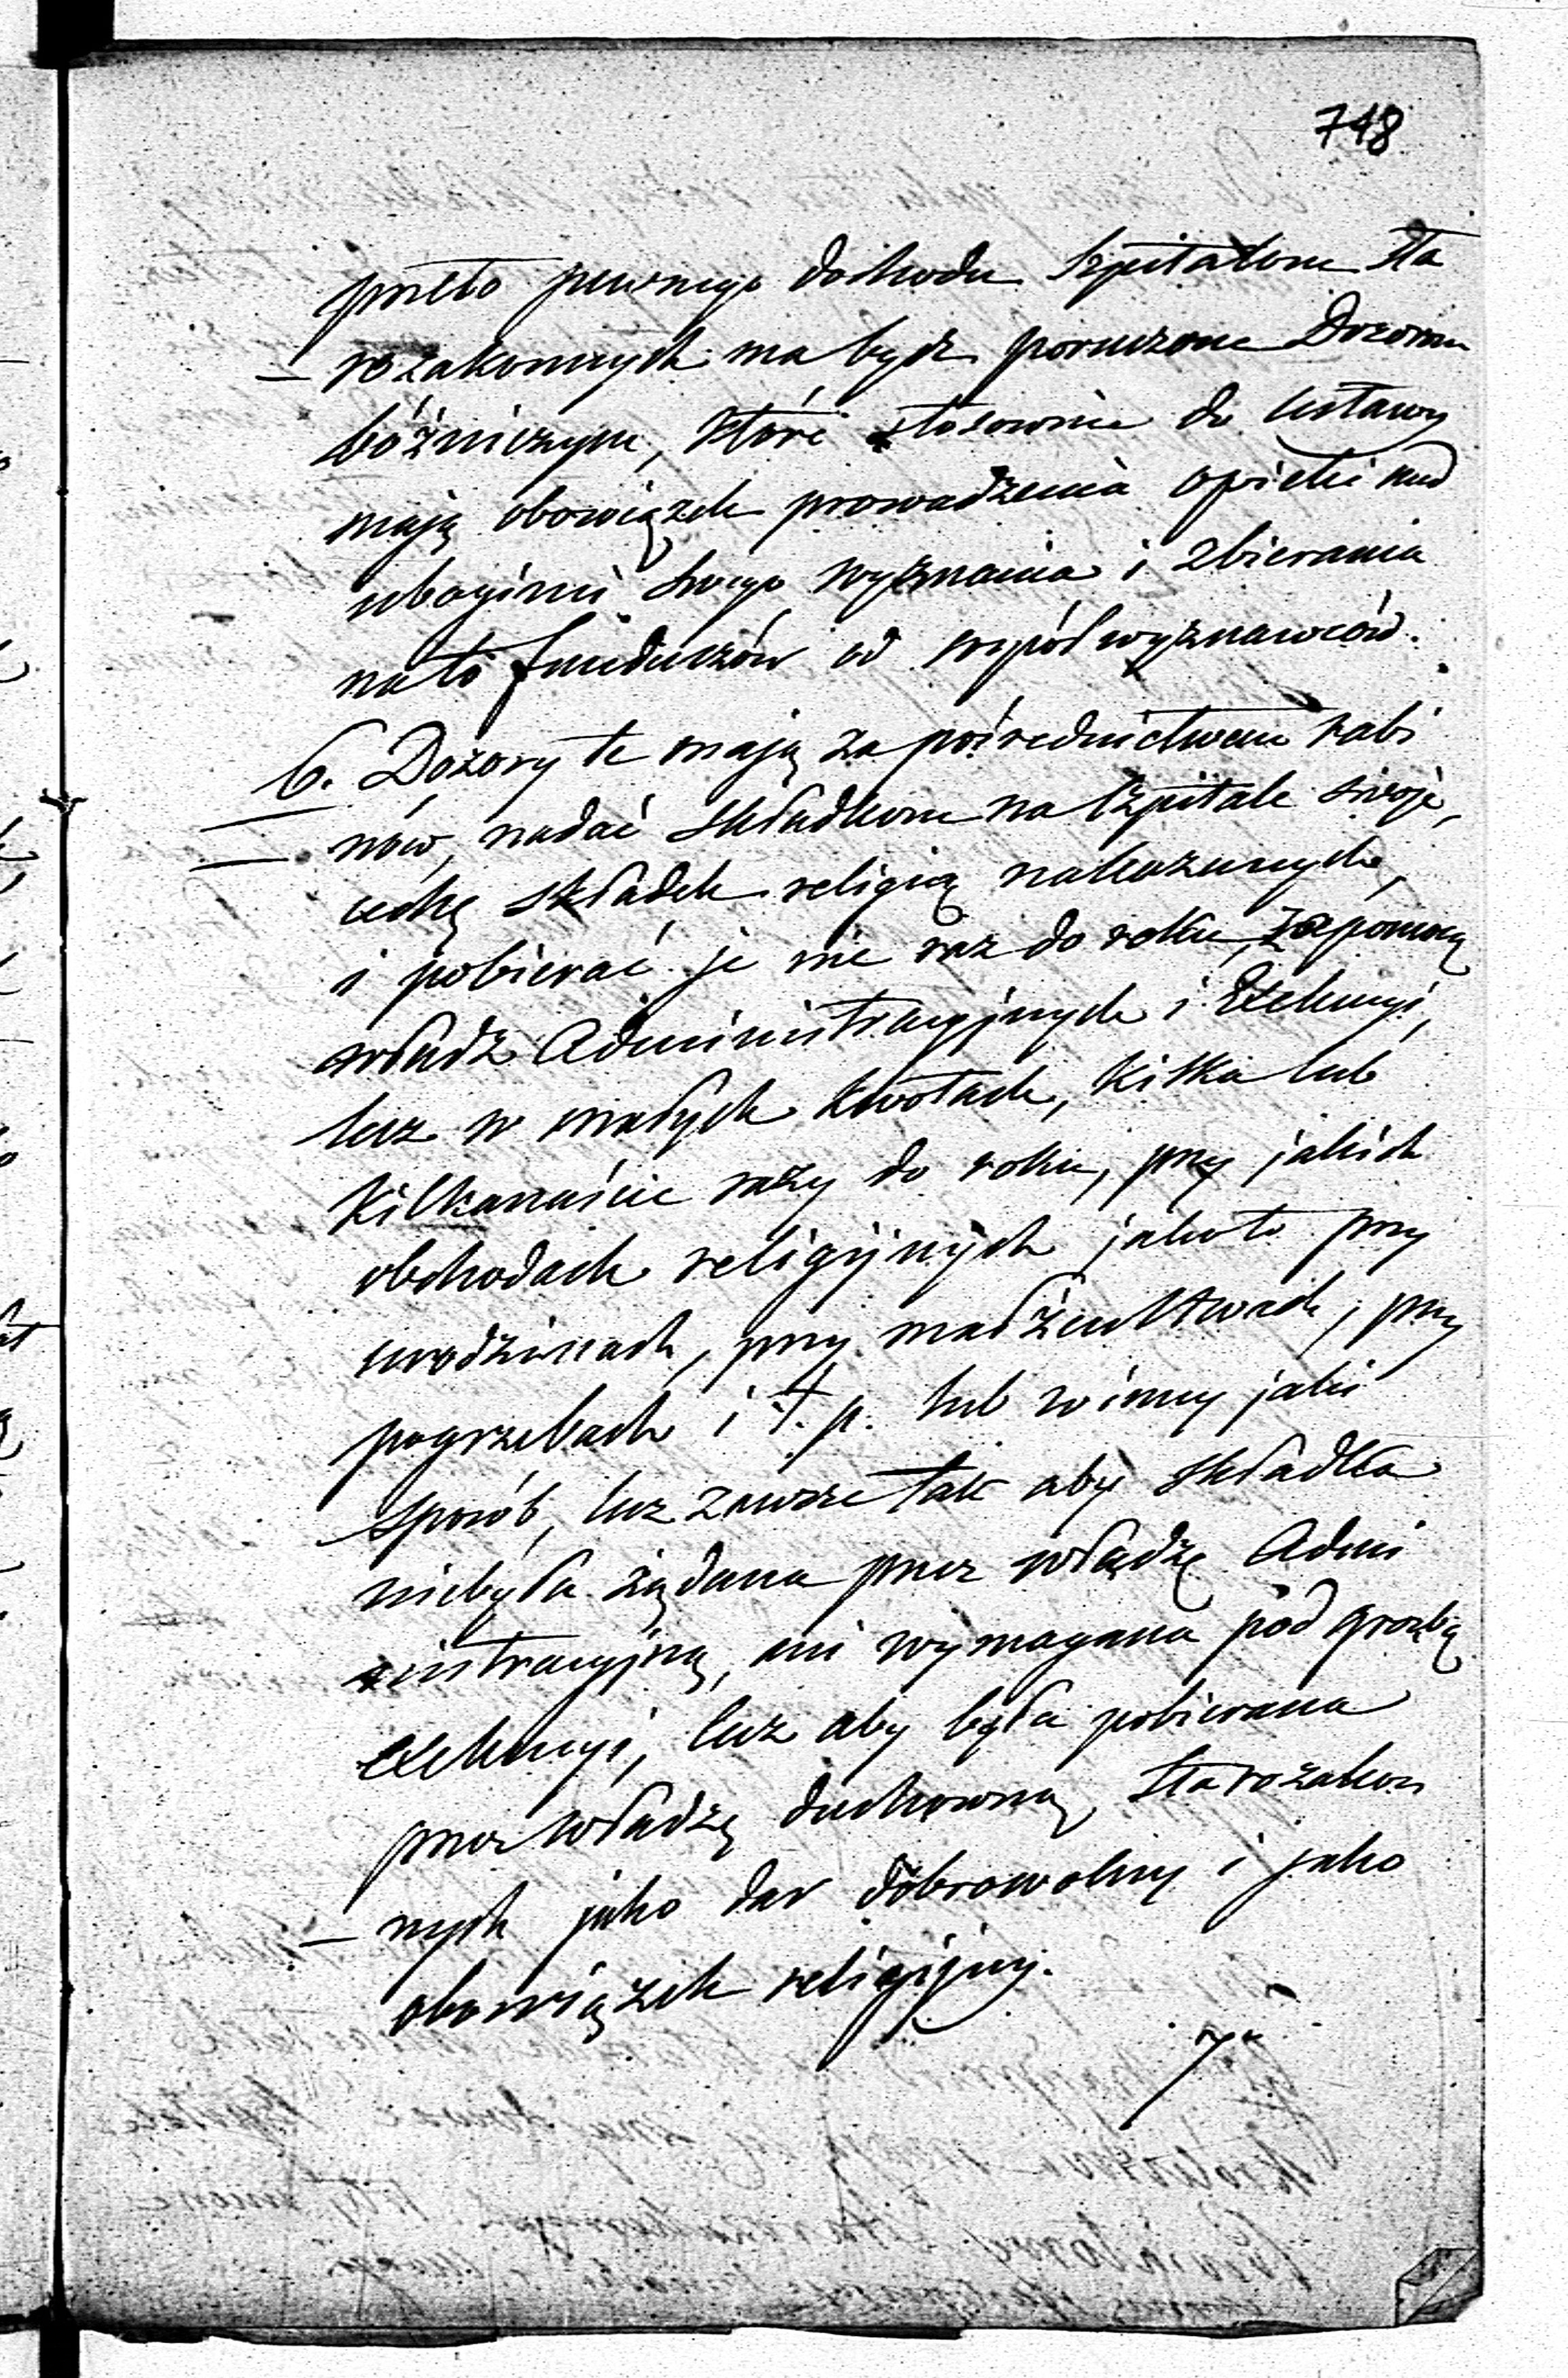 748
przeto pewnego dochodu Szpitalom Sta
rozakonnych ma bydz poruczone Dozorom
bóżniczym, które stosownie do Ustawy
mają obowiązek prowadzenia opieki nad
ubogimi swego wyznania i zbierania
na to funduszów od współwyznawców.
6. Dozory te mają za pośrednictwem rabi
nów, nadać składkom na Szpitale swoje,
cechę składek religią nakazanych,
i pobierać je nie raz do roku, za pomocą
władz Administracyjnych i Exekucyi,
lecz w małych kwotach, kilka lub
kilkanaście razy do roku, przy jakich
obchodach religijnych jakoto przy
urodzinach, przy małżeństwach, przy
pogrzebach i t. p. lub w inny jaki
sposób, lecz zawsze tak aby składka
niebyła żądana przez władzę Admi
nistracyjną, ani wymagana pod groźbą
exekucyi, lecz aby była pobierana
przez władzę duchowną Starozakon
nych jako dar dobrowolny i jako
obowiązek religijny.